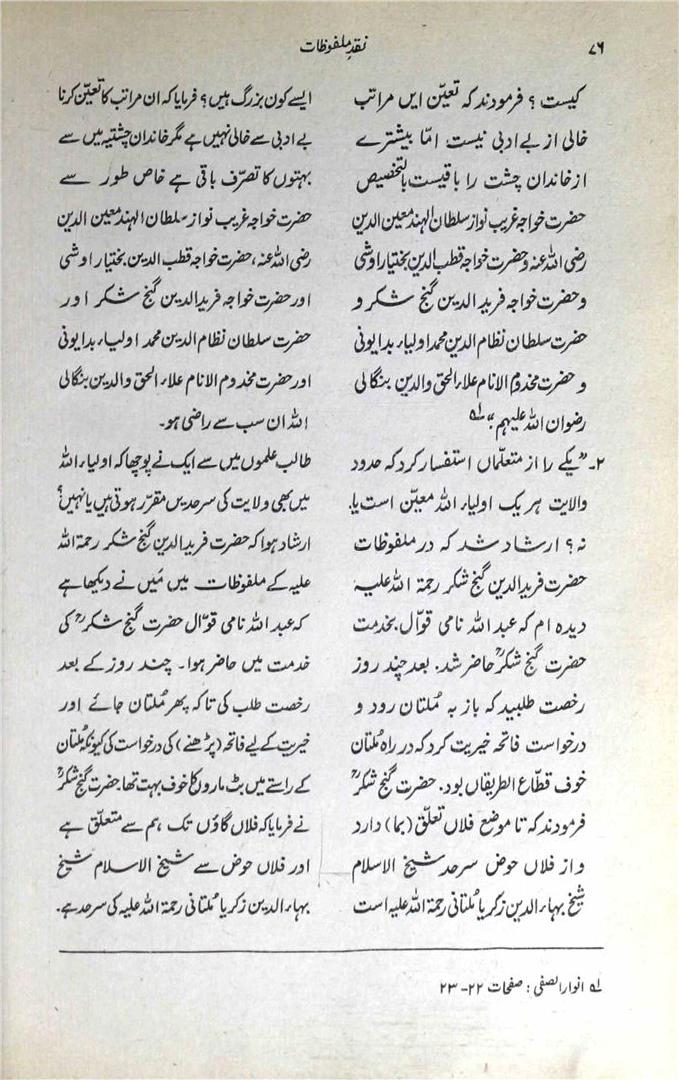 ۷۶
نقدِ ملفوظات
کیست ؟ فرمودند کہ تعیّن ایں مراتب
خالی از بے ادبی نیست امّا بیشترے
از خاندان چشت را باقیست بالتخصیص
حضرت خواجہ غریب نواز سلطان الہند معین الدین
رضی اللہ عنہ و حضرت خواجہ قطب الدین بختیار اوشی
و حضرت خواجہ فرید الدین گنج شکر و
حضرت سلطان نظام الدین محمد اولیاء بدایونی
و حضرت مخدوم الانام علاء الحق والدین بنگالی
رضوان اللہ علیہم"؂۱
۲۔ "یکے را از متعلّماں استفسار کرد کہ حدود
والایت ہر یک اولیاء اللہ معیّن است یا
نہ ؟ ارشاد شد کہ در ملفوظات
حضرت فرید الدین گنج شکر رحمۃ اللہ علیہ
دیدہ ام کہ عبد اللہ نامی قوّال بخدمت
حضرت گنج شکرؒ حاضر شد. بعد چند روز
رخصت طلبید کہ باز بہ مُلتان رود و
درخواست فاتحہ خیریت کرد کہ در راہ مُلتان
خوف قطّاع الطریقاں بود. حضرت گنج شکرؒ
فرمودند کہ تا موضع فلاں تعلّق (بما) دارد
و از فلاں حوض سرحد شیخ الاسلام
شیخ بہاء الدین زکریا مُلتانی رحمۃ اللہ علیہ است
ایسے کون بزرگ ہیں؟ فرمایا کہ ان مراتب کا تعیّن کرنا
بے ادبی سے خالی نہیں ہے مگر خاندان چشتیہ میں سے
بہتوں کا تصرّف باقی ہے خاص طور سے
حضرت خواجہ غریب نواز سلطان الہند معین الدین
رضی اللہ عنہ، حضرت خواجہ قطب الدین بختیار اوشی
اور حضرت خواجہ فرید الدین گنج شکر اور
حضرت سلطان نظام الدین محمد اولیاء بدایونی
اور حضرت مخدوم الانام علاء الحق والدین بنگالی
اللہ ان سب سے راضی ہو۔
طالب علموں میں سے ایک نے پوچھا کہ اولیاء اللہ
میں بھی ولایت کی سرحدیں مقرّر ہوتی ہیں یا نہیں؟
ارشاد ہوا کہ حضرت فرید الدین گنج شکر رحمۃ اللہ
علیہ کے ملفوظات میں مَیں نے دیکھا ہے
کہ عبد اللہ نامی قوّال حضرت گنج شکرؒ کی
خدمت میں حاضر ہوا۔ چند روز کے بعد
رخصت طلب کی تا کہ پھر مُلتان جائے اور
خیریت کے لیے فاتحہ (پڑھنے) کی درخواست کی کیونکہ مُلتان
کے راستے میں بٹ ماروں کا خوف بہت تھا۔ حضرت گنج شکرؒ
نے فرمایا کہ فلاں گاؤں تک ہم سے متعلّق ہے
اور فلاں حوض سے شیخ الاسلام شیخ
بہاء الدین زکریا مُلتانی رحمۃ اللہ علیہ کی سرحد ہے۔
؂۱ انوار الصفی : صفحات ۲۲-۲۳